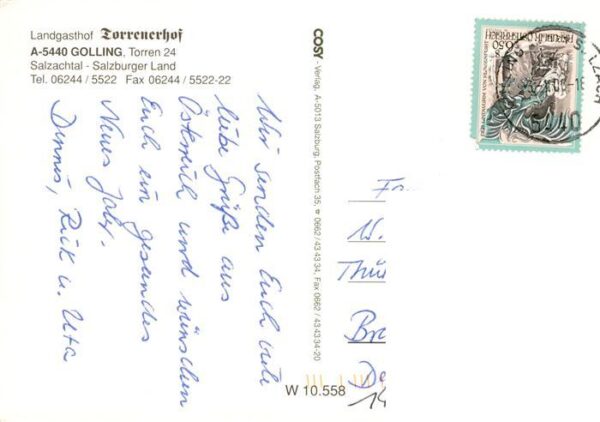 Landgasthof Torrenerhof
A-5440 GOLLING, Torren 24
Salzachtal - Salzburger Land
Tel. 06244 / 5522 Fax 06244 / 5522-22
Wir senden Euch viele
liebe Grüße aus
Österreich und wünschen
Euch ein gesundes
Neues Jahr.
Dennis, Rick u. Uta
COSY - Verlag, A-5013 Salzburg, Postfach 35, 0662 / 43 43 34, Fax 0662 / 43 43 34-20
W 10.558
REPUBLIK ÖSTERREICH
5440
Fa
W.
Thü
Br
De
14